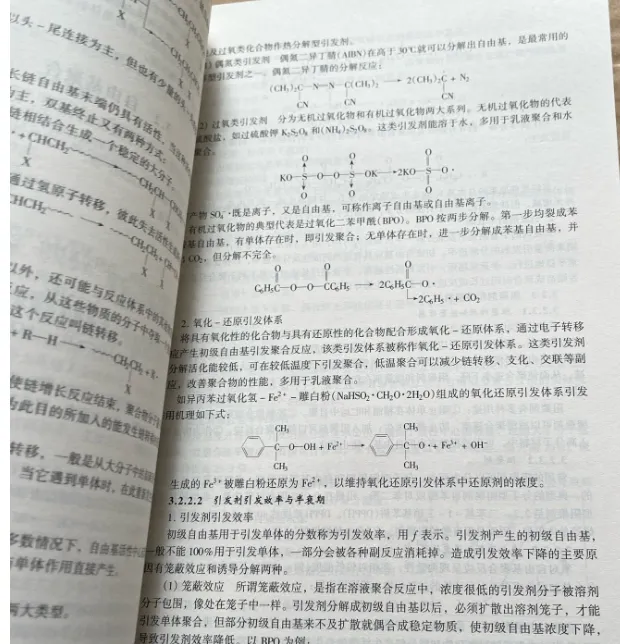 以头－尾连接为主，但也有少量的
长链自由基末端仍具有活性，当
为主，双基终止又有两种方式：
链相结合生成一个稳定的大分子
+ ·CHCH₂
X
通过氢原子转移，彼此失去活性生成
CHCH₂
CH₂CH₂
以外，还可能与反应体系中的
反应，从这些物质的分子中夺
这个反应叫链转移。
+ R—H → CH₂CH₂ + R·
X
使链增长反应结束，聚合物分子
为此目的所加入的能发生链转移
转移，一般是从大分子中的
当它遇到单体时，在此
多数情况下，自由基活性中心
与单体作用直接产生。
两大类型。
及过氧类化合物作热分解型引发剂。
偶氮类引发剂 偶氮二异丁腈(AIBN)在高于30℃就可以分解出自由基，是最常用的
型引发剂之一。偶氮二异丁腈的分解反应：
(CH₃)₂C—N＝N—C(CH₃)₂ → 2(CH₃)₂C· + N₂
CN CN CN
2) 过氧类引发剂 分为无机过氧化物和有机过氧化物两大系列。无机过氧化物的代表
硫酸盐，如过硫酸钾 K₂S₂O₈ 和(NH₄)₂S₂O₈。这类引发剂能溶于水，多用于乳液聚合和水
聚合。
O O O
KO—S—O—O—S—OK → 2KO—S—O·
O O O
产物 SO₄⁻·既是离子，又是自由基，可称作离子自由基或自由基离子。
有机过氧化物的典型代表是过氧化二苯甲酰(BPO)。BPO 按两步分解。第一步均裂成苯
基自由基，有单体存在时，即引发聚合；无单体存在时，进一步分解成苯基自由基，并
CO₂，但分解不完全。
O O O
C₆H₅C—O—O—CC₆H₅ → 2C₆H₅C—O·
→2C₆H₅·+ CO₂
2. 氧化－还原引发体系
将具有氧化性的化合物与具有还原性的化合物配合形成氧化－还原体系，通过电子转移
应产生初级自由基引发聚合反应，该类引发体系被称作氧化－还原引发体系。这类引发剂
分解活化能较低，可在较低温度下引发聚合，低温聚合可以减少链转移、支化、交联等副
应，改善聚合物的性能，多用于乳液聚合。
如异丙苯过氧化氢－Fe²⁺－雕白粉(NaHSO₂·CH₂O·2H₂O)组成的氧化还原引发体系引发
用机理如下式：
CH₃ CH₃
C—O—OH + Fe²⁺ → C—O·+ Fe³⁺ + OH⁻
CH₃ CH₃
生成的 Fe³⁺被雕白粉还原为 Fe²⁺，以维持氧化还原引发体系中还原剂的浓度。
3.2.2.2 引发剂引发效率与半衰期
1. 引发剂引发效率
初级自由基用于引发单体的分数称为引发效率，用 f 表示。引发剂产生的初级自由基，
一般不能100%用于引发单体，一部分会被各种副反应消耗掉。造成引发效率下降的主要原
因有笼蔽效应和诱导分解两种。
(1) 笼蔽效应 所谓笼蔽效应，是指在溶液聚合反应中，浓度很低的引发剂分子被溶剂
分子包围，像处在笼子中一样。引发剂分解成初级自由基以后，必须扩散出溶剂笼子，才能
引发单体聚合，但部分初级自由基来不及扩散就偶合成稳定物质，使初级自由基浓度下降，
导致引发剂效率降低。以 BPO 为例：